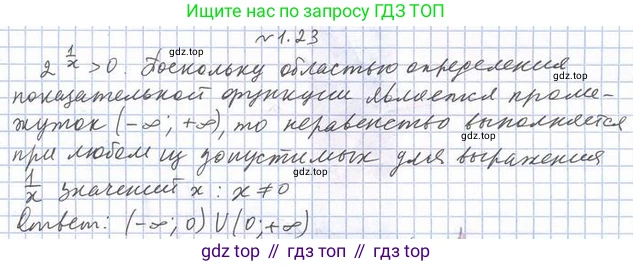 Ищите нас по запросу ГДЗ ТОП
№1.23
2^(1/x) > 0. Поскольку областью определения
gdz.top
показательной функции является проме-
жуток (-∞; +∞), то неравенство выполняется
gdz.top
gdz.top
при любом из допустимых для выражения
1/x значений x : x ≠ 0
gdz.top
Ответ: (-∞; 0) ∪ (0; +∞)
gdz.top // гдз.топ // gdz.top